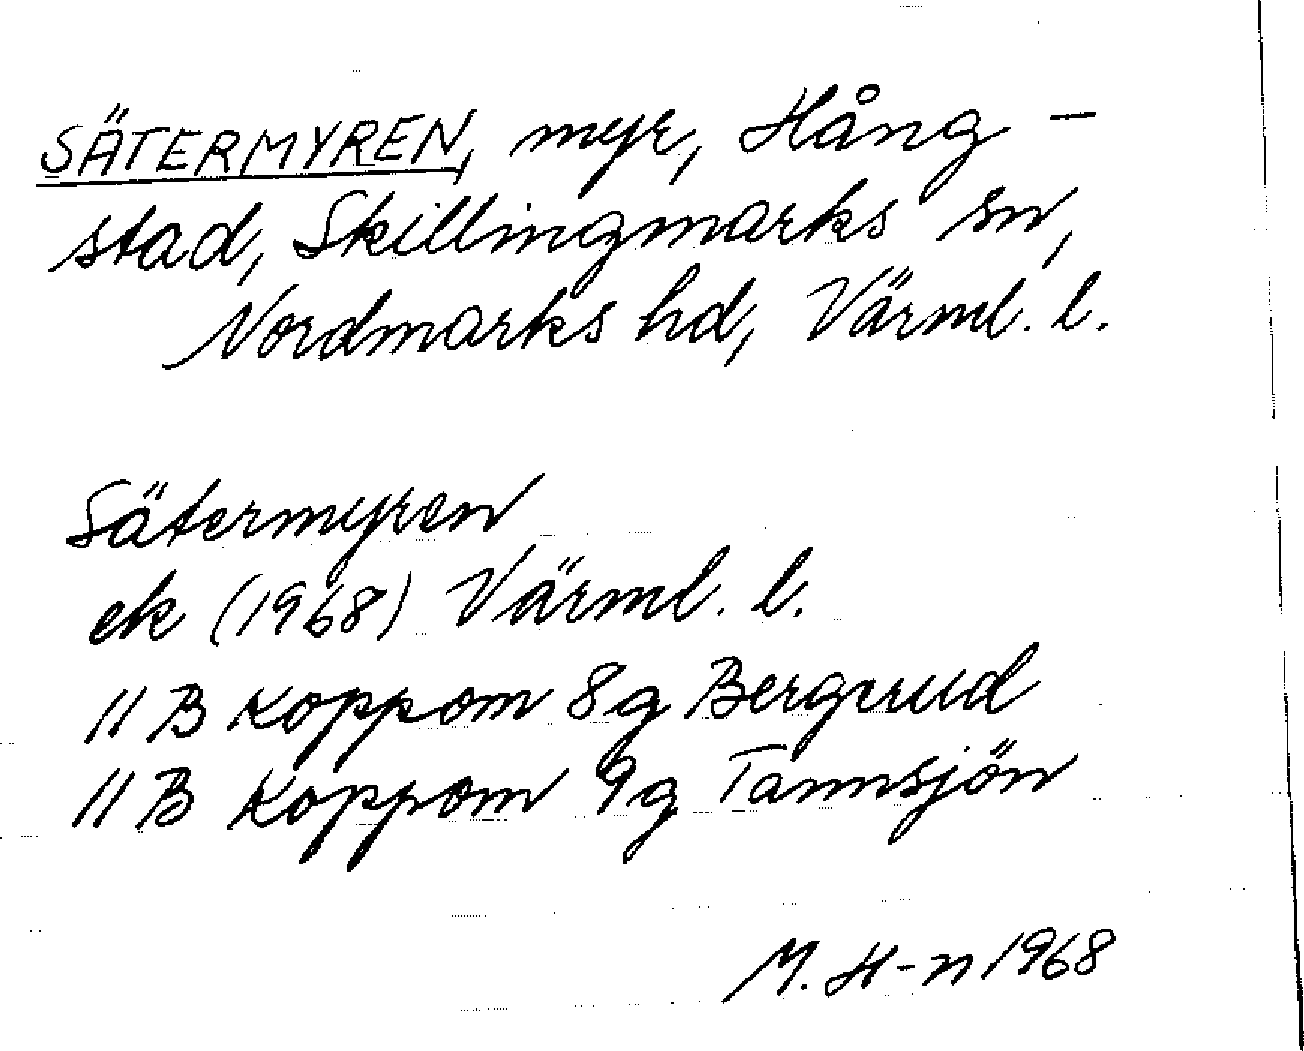 SÄTERMYREN, myr, Hång-
stad, Skillingmarks sn,
Nordmarks hd, Värml. l.
Sätermyren
ek (1968) Värml. l.
11 B Koppom 8g Bergerud
11 B Koppom 9g Tannsjön
M. H-n 1968